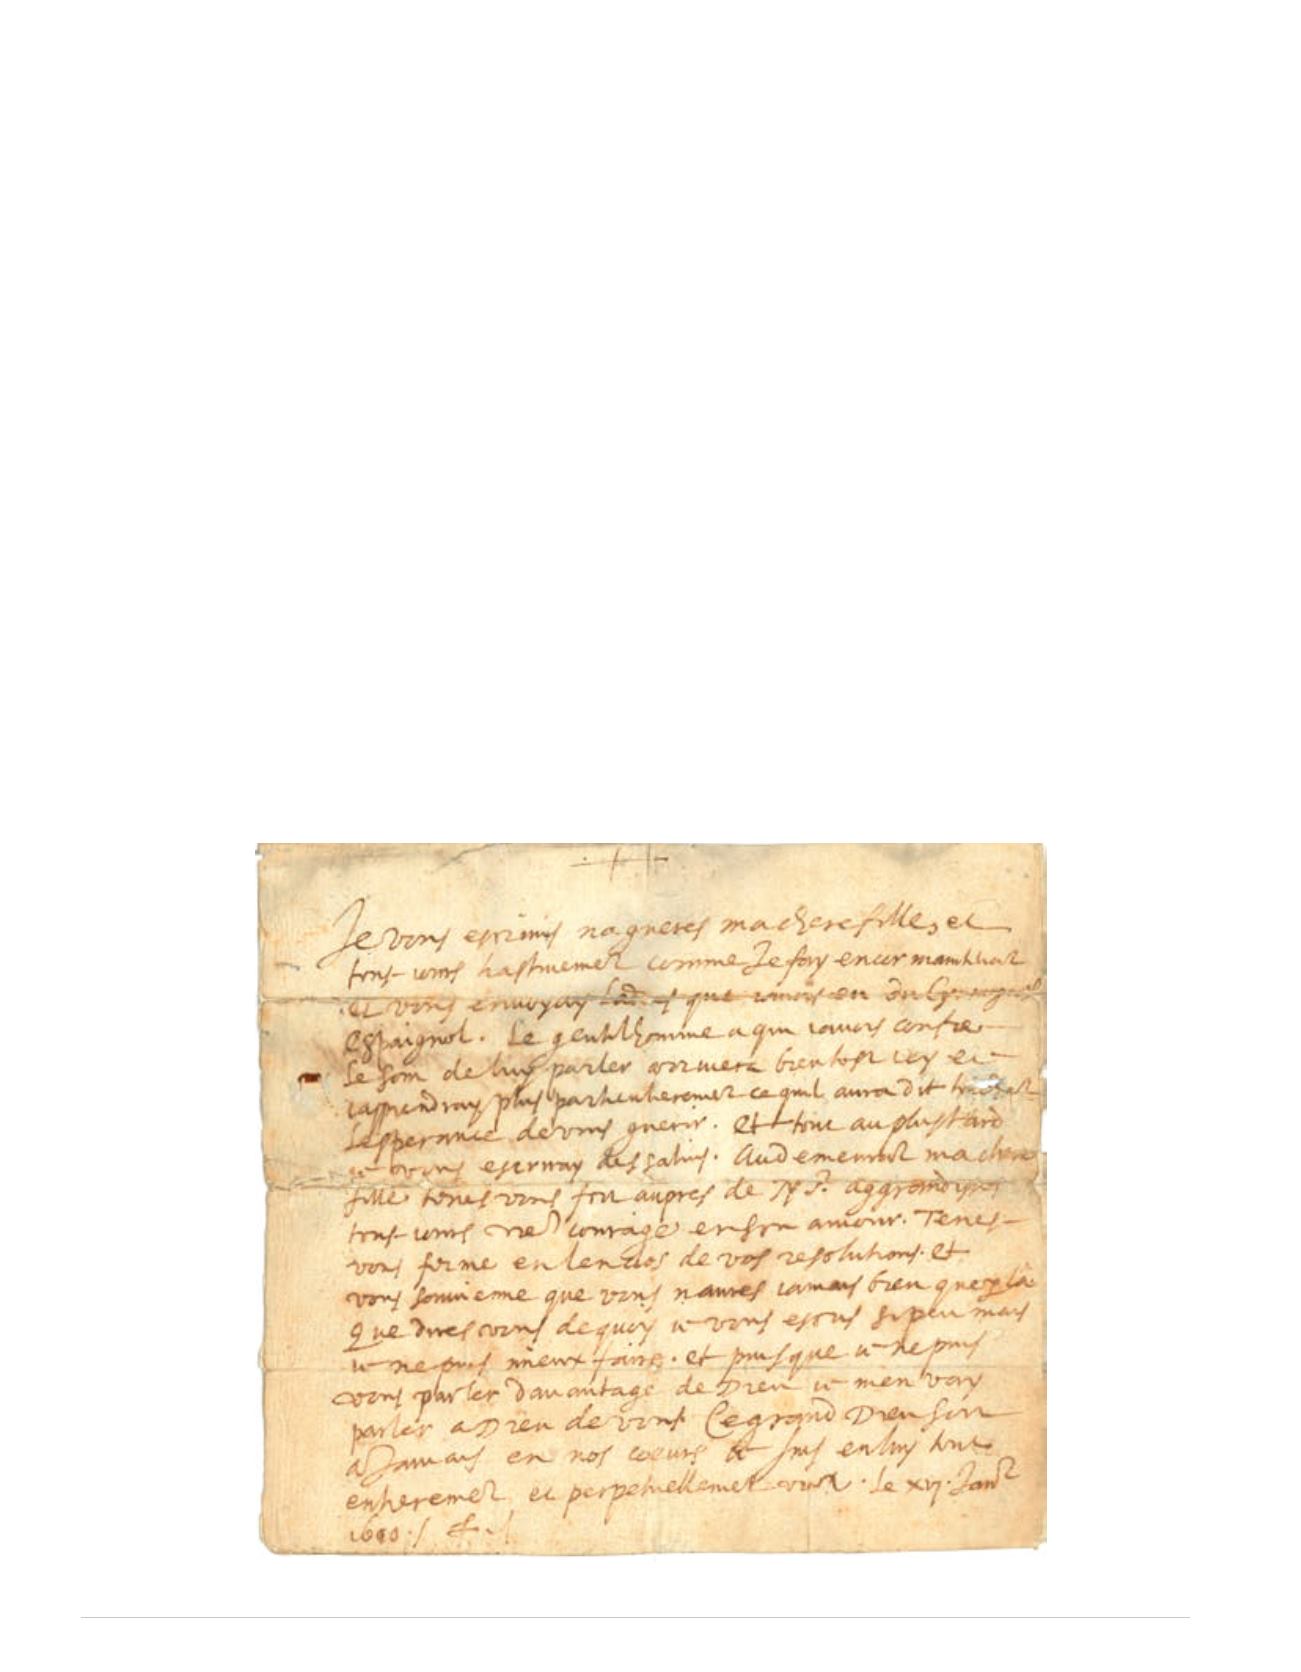 Je vous escrivis nagueres ma chere fille, et
tous-jours hastivemet comme Je fay encor maintenat
et vous envoyay que javois eu du
espaignol. Le gentilhomme a qui javois confie
le soin de luy parler arrivera bien tost icy et
japprendray plus particulieremet ce quil aura dit
lesperance de vous guerir. et tout au plus tard
je vous escrivay des salins. Cependant ma chere
fille tenes vous fort aupres de N S. aggrandisses
tous-jours vre courage en son amour. Tenes-
vous ferme en lenclos de vos resolutions. et
vous souvienne que vous naures jamais bien que par la
Que dires vous dequoy je vous escris si peu mais
je ne puis mieux faire. et puis que je ne puis
vous parler davantage de Dieu je men vay
parler a Dieu de vous. Ce grand Dieu soit
a Jamais en nos coeurs Je suis en luy tout
entieremet et perpetuellemet vre. Le xvj. Janr
1610./ F./